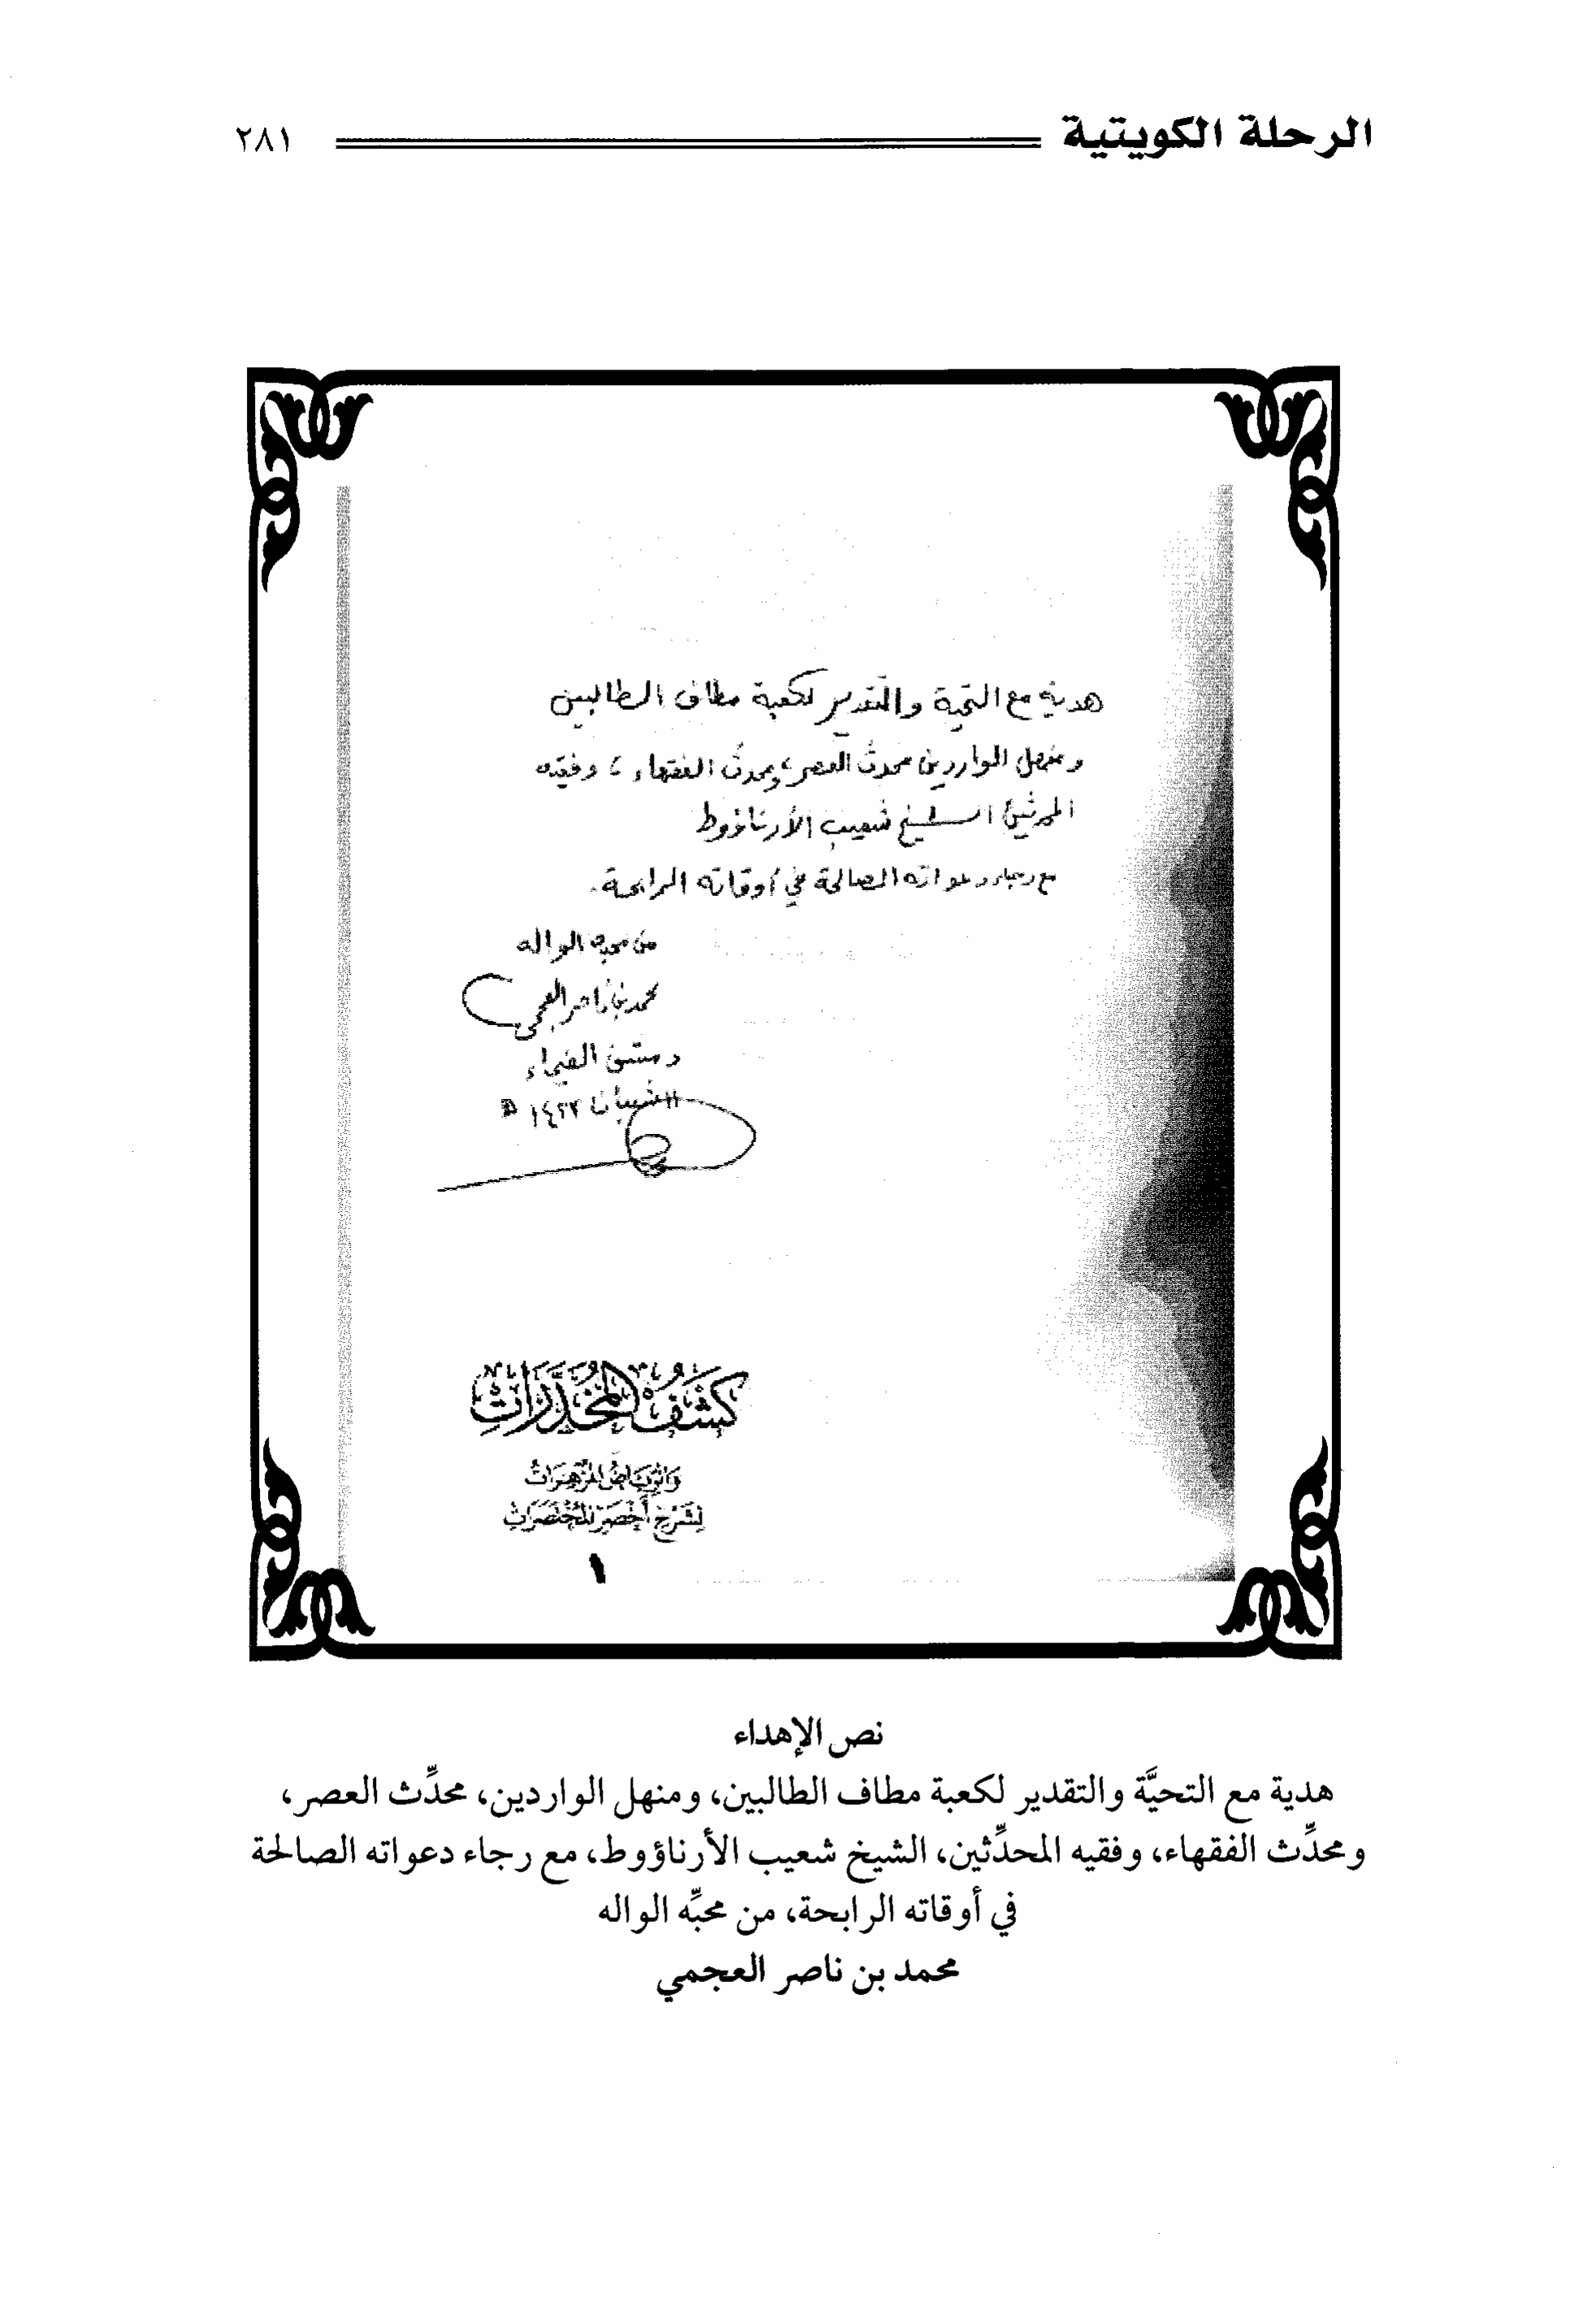 الرحلة الكويتية
٢٨١
هدية مع التحية والتقدير لكعبة مطاف الطالبين
ومنهل الواردين محدث العصر، ومحدث الفقهاء، وفقيه
المحدثين الشيخ شعيب الأرناؤوط
مع رجاء دعواته الصالحة في أوقاته الرابحة.
من محبه الواله
محمد بن ناصر العجمي
دمشق الفيحاء
١١ شعبان ١٤٢٣ هـ
كَشْفُ الْمُخَدَّرَاتِ
وَالرِّيَاضُ الْمُزْهِرَاتُ
لِشَرْحِ أَخْصَرِ الْمُخْتَصَرَاتِ
١
نص الإهداء
هدية مع التحيَّة والتقدير لكعبة مطاف الطالبين، ومنهل الواردين، محدِّث العصر،
ومحدِّث الفقهاء، وفقيه المحدِّثين، الشيخ شعيب الأرناؤوط، مع رجاء دعواته الصالحة
في أوقاته الرابحة، من محبِّه الواله
محمد بن ناصر العجمي